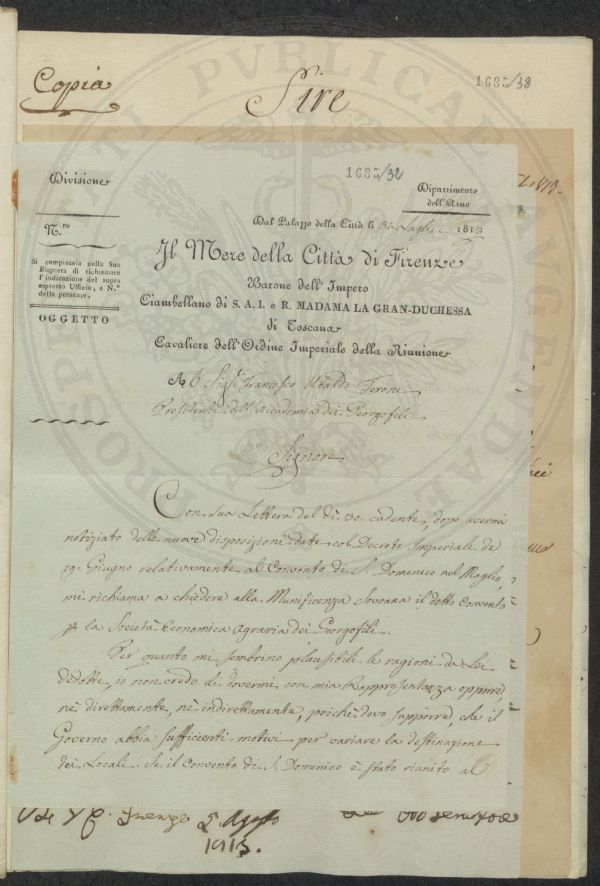 Copia
Sire
1685/38
1685/32
Divisione
Dipartimento
dell'Arno
N.ro
Dal Palazzo della Città li 31. Luglio 1813
Si compiaccia nella Sua
Risposta di richiamare
l'indicazione del sopra
espresso Uffizio, e N.°
della presente.
OGGETTO
Il Mere della Città di Firenze
Barone dell'Impero
Ciambellano di S. A. I. e R. MADAMA LA GRAN-DUCHESSA
di Toscana
Cavaliere dell'Ordine Imperiale della Riunione
Al Sig.r Francesco Ubaldo Feroni
Presidente dell'Accademia dei Georgofili
Signore
Con sua Lettera del dì 30. cadente, dopo avermi
notiziato delle nuove disposizioni date col Decreto Imperiale de
19. Giugno relativamente al Convento di S. Domenico nel Maglio,
mi richiama a chiedere alla Munificenza Sovrana il detto Convento
p la Società Economica Agraria dei Georgofili.
Per quanto mi sembrino plausibili le ragioni da Lei
dedotte, io non credo di dovermi con mia Rappresentanza opporre,
nè direttamente nè indirettamente, poichè devo supporre, che il
Governo abbia sufficienti motivi per variare la destinazione
dei Locali. Se il Convento di S. Domenico è stato riunito al
Firenze 5. Agosto
1913.
PROSPERITATI PUBLICAE AUGENDAE